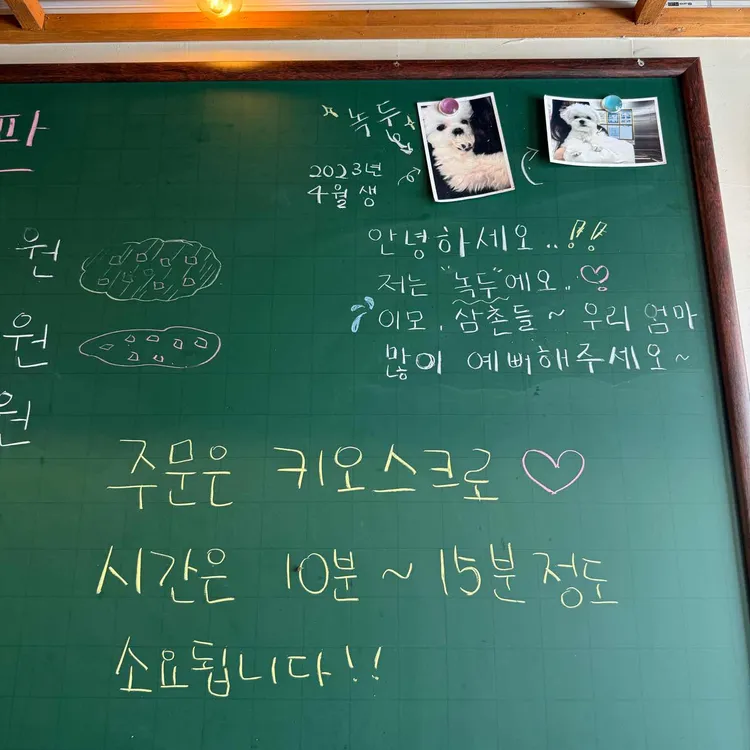 파
녹두
2023년
4월 생
원
안녕하세요..!!
저는 "녹두"에오..♡
원
이모, 삼촌들~ 우리 엄마
많이 예뻐해주세요~
원
주문은 키오스크로 ♡
시간은 10분~15분 정도
소요됩니다!!